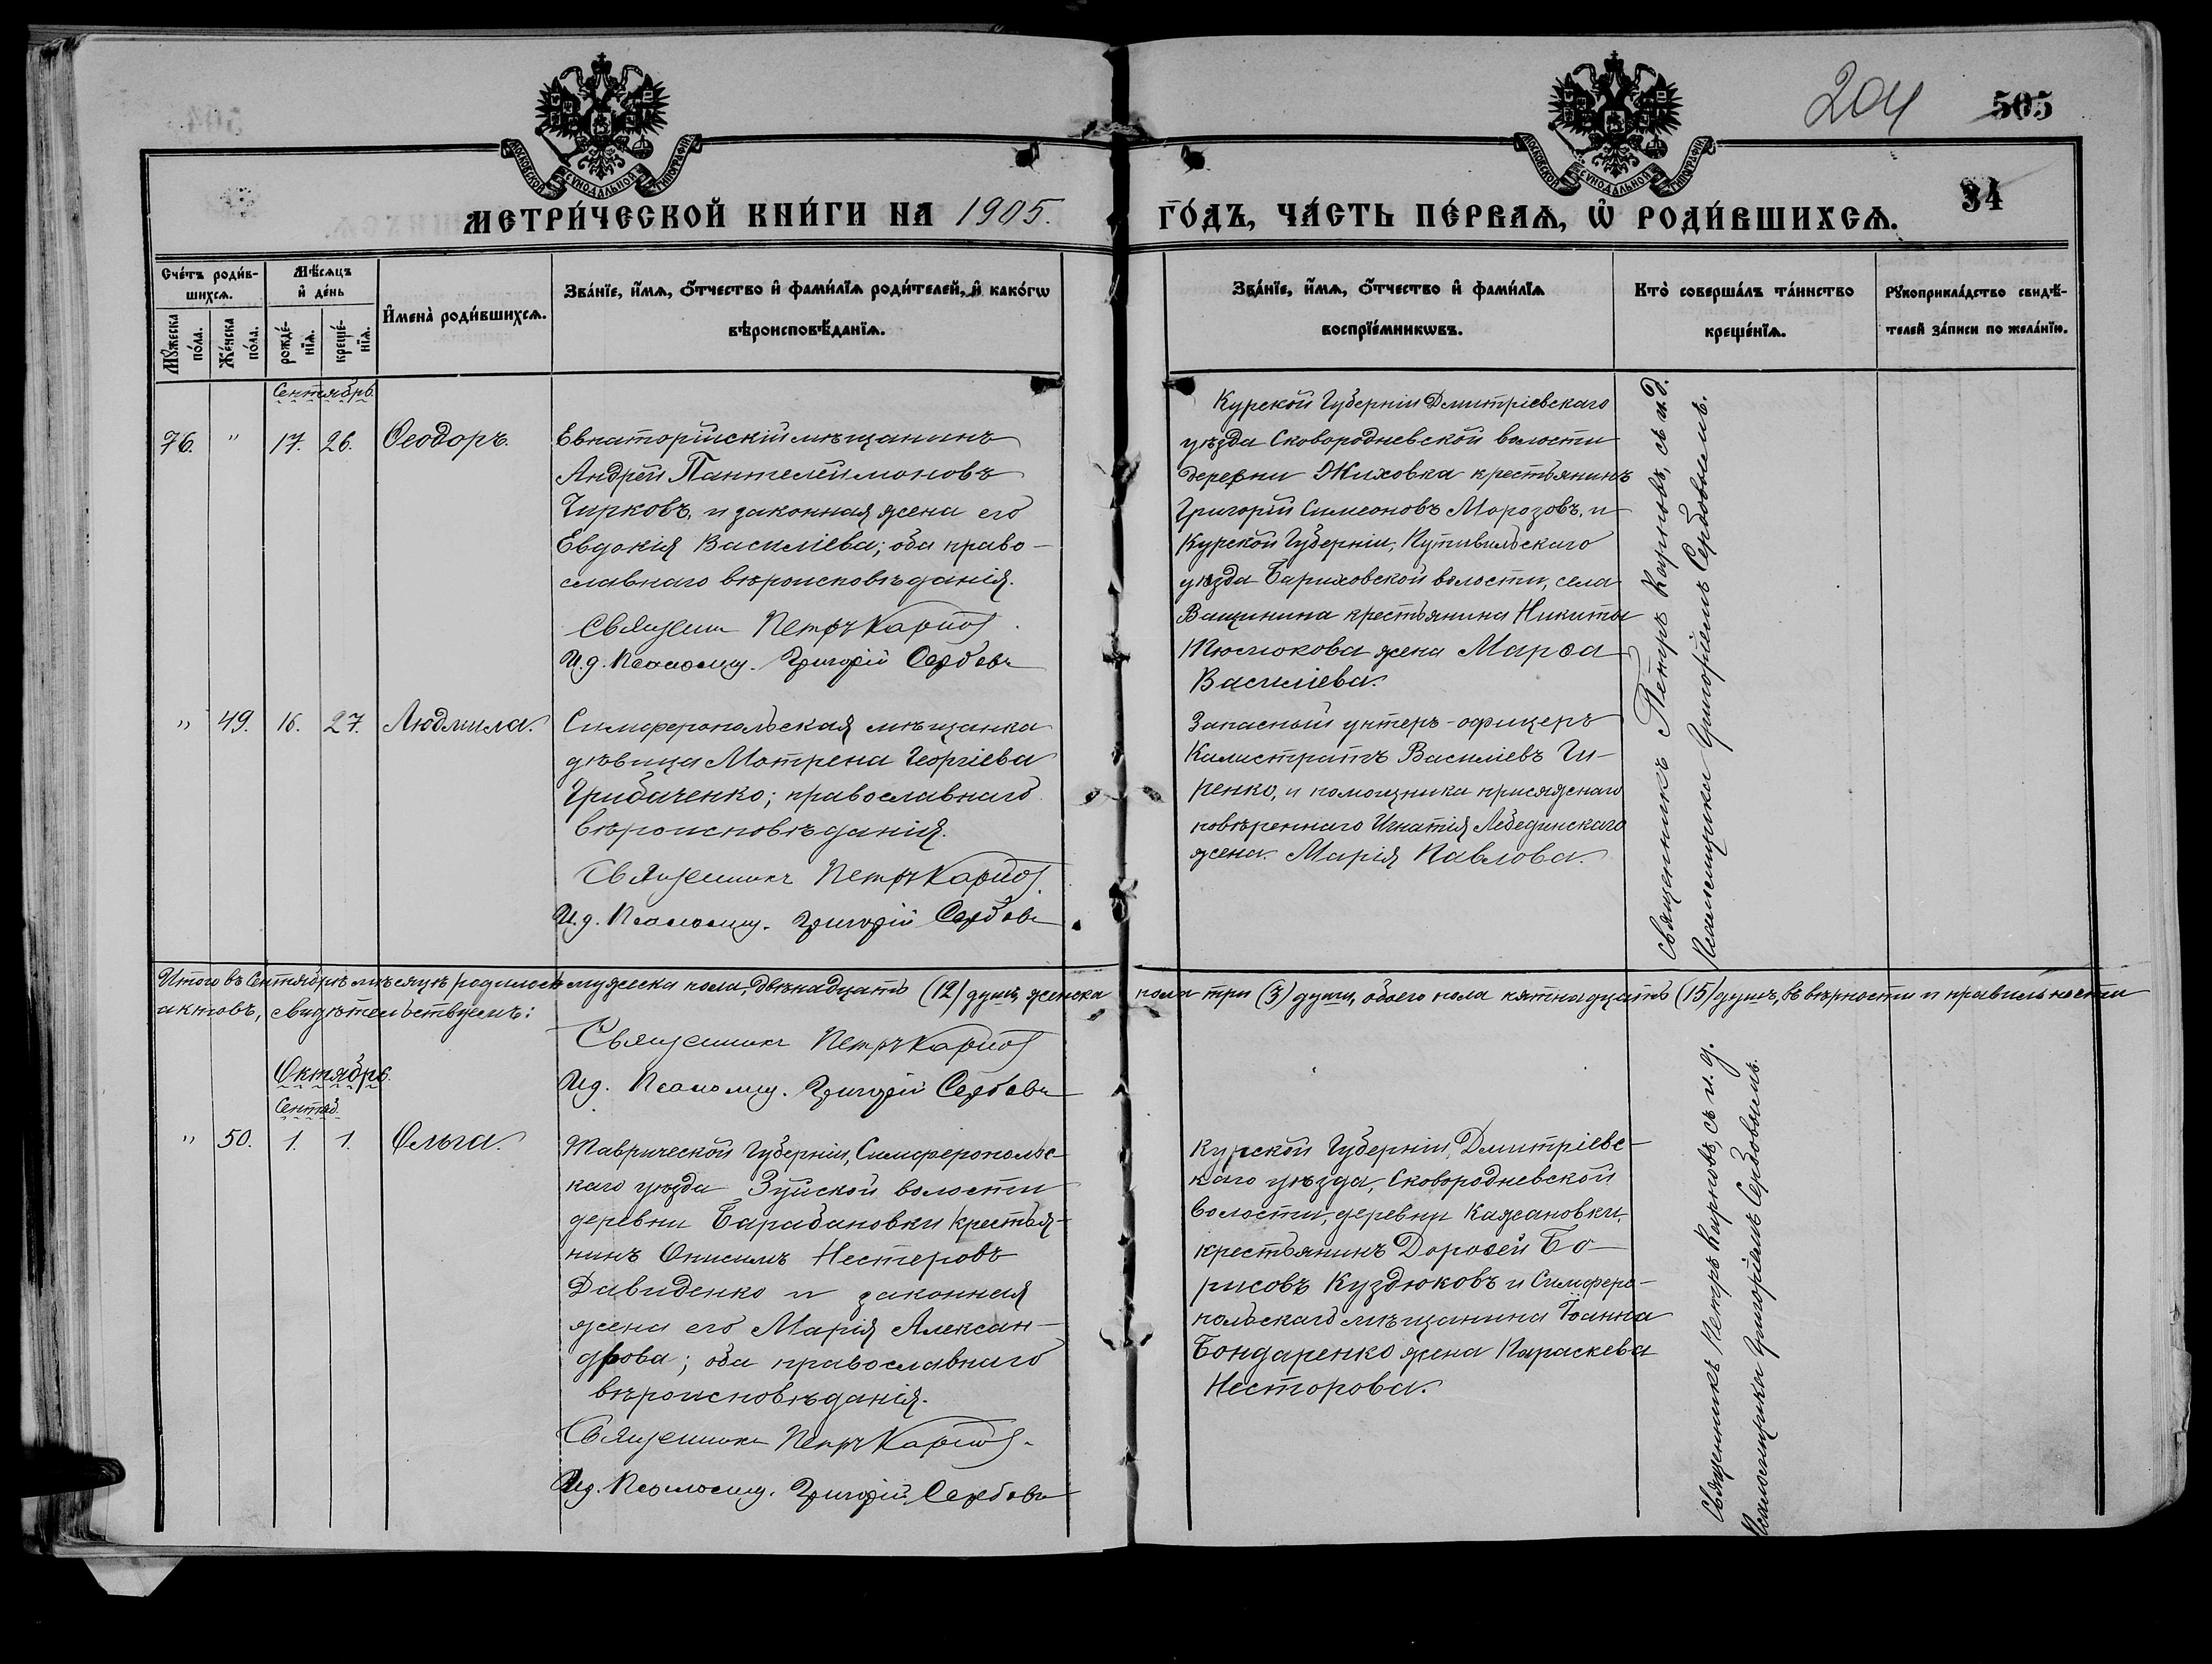 204 505
34
МОСКОВСКОЙ СѴНОДАЛЬНОЙ ТИПОГРАФІИ
МОСКОВСКОЙ СѴНОДАЛЬНОЙ ТИПОГРАФІИ
МЕТРИ́ЧЕСКОЙ КНИ́ГИ НА 1905. ГО́ДЪ, ЧА́СТЬ ПЕ́РВАѦ, Ѡ҆ РОДИ́ВШИХСѦ.
Сче́тъ роди́в-
шихсѧ.
Мꙋжеска по́ла.
Же́нска по́ла.
Мѣ́сѧцъ и҆ де́нь
рожде́-нїѧ.
креще́-нїѧ.
И҆мена̀ роди́вшихсѧ.
Зва́нїе, и҆́мѧ, ѻ҆́тчество и҆ фами́лїѧ роди́телей, и҆ како́гѡ
вѣроисповѣ́данїѧ.
Зва́нїе, и҆́мѧ, ѻ҆́тчество и҆ фами́лїѧ
воспрїе́мникѡвъ.
Кто̀ соверша́лъ та́инство
креще́нїѧ.
Рꙋкоприкла́дство свидѣ́-
телей за́писи по жела́нїю.
Сентябрь.
76. " 17. 26. Ѳеодоръ.
Евпаторійскій мѣщанинъ
Андрей Пантелеймоновъ
Чирковъ, и законная жена его
Евдокія Василіева; оба право-
славнаго вѣроисповѣданія.
Священн Петръ Карпов
И.д. Псаломщ. Григорій Сербовъ
Курской Губерніи Дмитріевскаго
уѣзда Сковородневской волости
деревни Жиховка крестьянинъ
Григорій Симеоновъ Морозовъ, и
Курской Губерніи, Путивильскаго
уѣзда Бариховской волости, села
Ващинина крестьянина Никиты
жена Марѳа
Василіева.
Священникъ Петръ Карповъ, съ и.д.
Псаломщика Григоріемъ Сербовымъ.
" 49. 16. 27. Людмила.
Симферопольская мѣщанка
дѣвица Мотрена Георгіева
Грибаченко; православнаго
вѣроисповѣданія.
Священникъ Петръ Карпов.
И.д. Псаломщ. Григорій Сербовъ
Запасный унтеръ-офицеръ
Калистратъ Василіевъ Ги-
ренко, и помощника присяжнаго
повѣреннаго Игнатія Лебединскаго
жена Марія Павлова.
Итого въ Сентябрѣ мѣсяцѣ родилось мужеска пола, двѣнадцать (12) душъ, женска пола три (3) души, обоего пола пятнадцать (15) душъ, въ вѣрности и правильности
актовъ, свидѣтельствуемъ:
Священникъ Петръ Карпов
И.д. Псаломщ. Григорій Сербовъ
Октябрь.
Сентяб.
" 50. 1. 1. Ольга.
Таврической Губерніи, Симферопольс-
каго уѣзда Зуйской волости
деревни Барабановки крестья-
нинъ Онисимъ Нестеровъ
Давиденко и законная
жена его Марія Алексан-
дрова; оба православнаго
вѣроисповѣданія.
Священникъ Петръ Карпов.
И.д. Псаломщ. Григорій Сербовъ
Курской Губерніи, Дмитріевс-
каго уѣзда, Сковородневской
волости, деревни Кажановки,
крестьянинъ Дороѳей Бо-
рисовъ Куздюковъ и Симферо-
польскаго мѣщанина Іоанна
Бондаренко жена Параскева
Несторова.
Священникъ Петръ Карповъ, съ и.д.
Псаломщика Григоріемъ Сербовымъ.